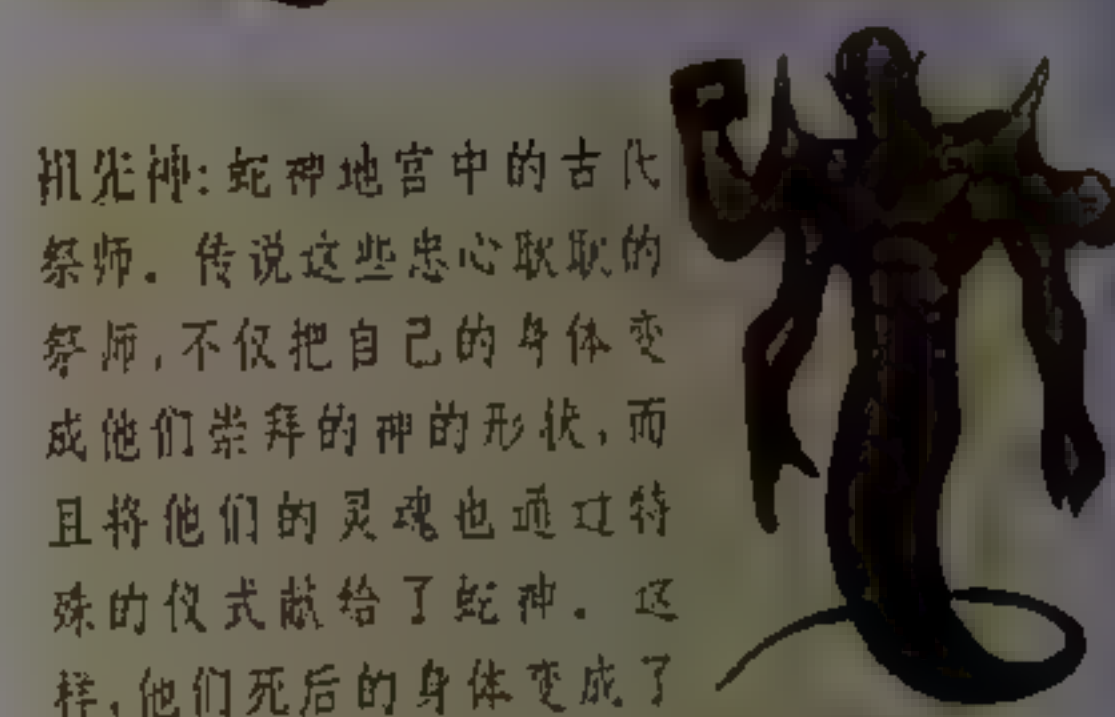 祖先神:蛇神地宫中的古代
祭师。传说这些忠心耿耿的
祭师,不仅把自己的身体变
成他们崇拜的神的形状,而
且将他们的灵魂也通过特
殊的仪式献给了蛇神。这
样,他们死后的身体变成了